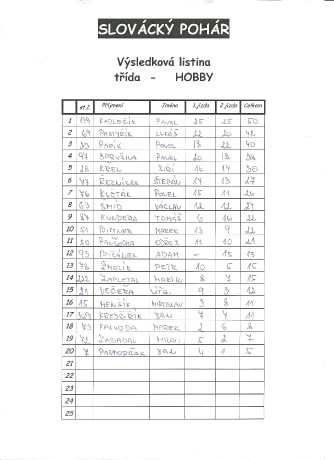 SLOVÁCKÝ POHÁR
Výsledková listina
třída - HOBBY
st.č. Příjmení Jméno 1.jízda 2.jízda Celkem
1 119 KADLČÍK PAVEL 25 25 50
2 69 PASTYŘÍK LUKÁŠ 22 20 42
3 33 PAPÍK PAVEL 18 22 40
4 97 SPRUŽINA PAVEL 20 18 38
5 28 KŘEN JIŘÍ 16 14 30
6 47 ŘEZNÍČEK ŠTĚPÁN 14 13 27
7 76 KVĚTÁK PAVEL 15 11 26
8 63 ŠMÍD VÁCLAV 12 12 24
9 87 KUNDERA TOMÁŠ 6 16 22
10 51 BITTNER MAREK 13 9 22
11 50 11 10 21
12 93 ADAM - 15 15
13 78 ŽMOLÍK PETR 10 5 15
14 222 ZAPLETAL MARTIN 8 7 15
15 21 VEČEŘA 9 3 12
16 15 MENŠÍK MIROSLAV 3 8 11
17 JAN 7 4 11
18 73 KALVODA MAREK 2 6 8
19 72 ZABADAL MILAN 5 2 7
20 7 PASTORČÁK JAN 4 1 5
21
22
23
24
25